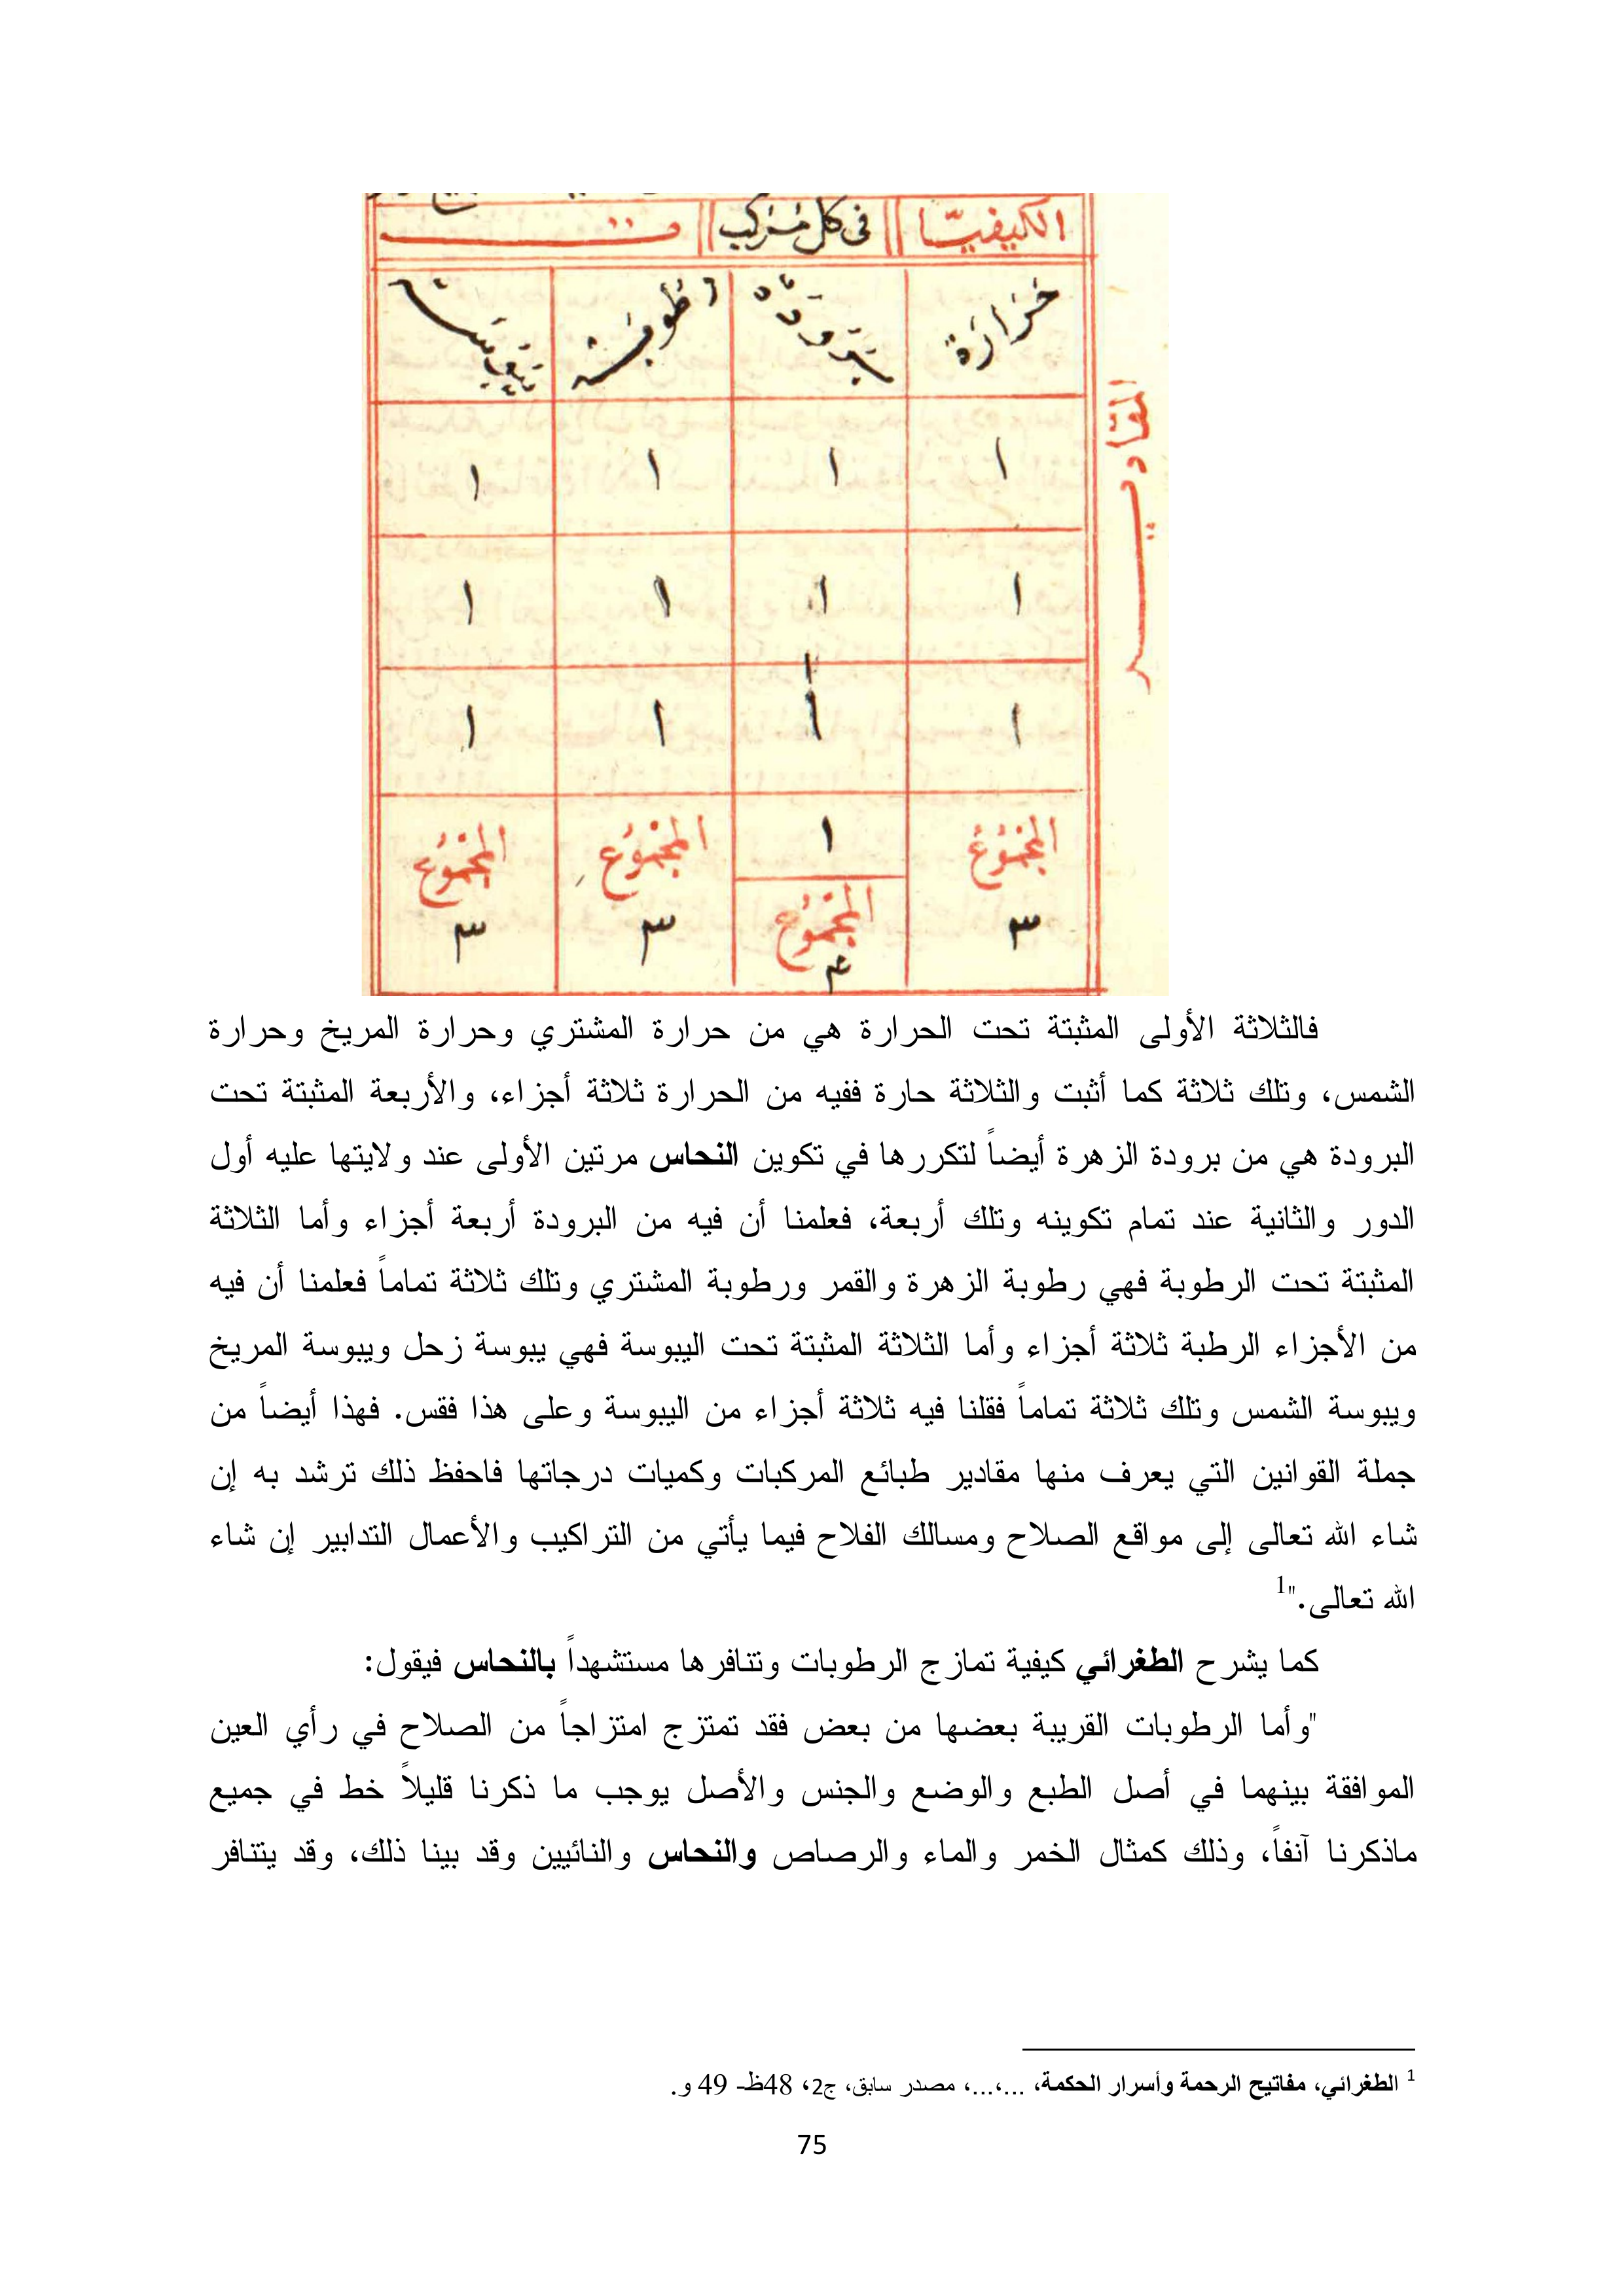 الكيفيّا في كل مركب ت
حرارة برودة رطوبة يبوسة
المقادير
١ ١ ١ ١
١ ١ ١ ١
١ ١ ١ ١
المجموع ١ المجموع المجموع
٣ المجموع ٣ ٣
٤
فالثلاثة الأولى المثبتة تحت الحرارة هي من حرارة المشتري وحرارة المريخ وحرارة
الشمس، وتلك ثلاثة كما أثبت والثلاثة حارة ففيه من الحرارة ثلاثة أجزاء، والأربعة المثبتة تحت
البرودة هي من برودة الزهرة أيضاً لتكررها في تكوين النحاس مرتين الأولى عند ولايتها عليه أول
الدور والثانية عند تمام تكوينه وتلك أربعة، فعلمنا أن فيه من البرودة أربعة أجزاء وأما الثلاثة
المثبتة تحت الرطوبة فهي رطوبة الزهرة والقمر ورطوبة المشتري وتلك ثلاثة تماماً فعلمنا أن فيه
من الأجزاء الرطبة ثلاثة أجزاء وأما الثلاثة المثبتة تحت اليبوسة فهي يبوسة زحل ويبوسة المريخ
ويبوسة الشمس وتلك ثلاثة تماماً فقلنا فيه ثلاثة أجزاء من اليبوسة وعلى هذا فقس. فهذا أيضاً من
جملة القوانين التي يعرف منها مقادير طبائع المركبات وكميات درجاتها فاحفظ ذلك ترشد به إن
شاء الله تعالى إلى مواقع الصلاح ومسالك الفلاح فيما يأتي من التراكيب والأعمال التدابير إن شاء
الله تعالى."1
كما يشرح الطغرائي كيفية تمازج الرطوبات وتنافرها مستشهداً بالنحاس فيقول:
"وأما الرطوبات القريبة بعضها من بعض فقد تمتزج امتزاجاً من الصلاح في رأي العين
الموافقة بينهما في أصل الطبع والوضع والجنس والأصل يوجب ما ذكرنا قليلاً خط في جميع
ماذكرنا آنفاً، وذلك كمثال الخمر والماء والرصاص والنحاس والنائيين وقد بينا ذلك، وقد يتنافر
1 الطغرائي، مفاتيح الرحمة وأسرار الحكمة، ...،...، مصدر سابق، ج2، 48ظ- 49 و.
75